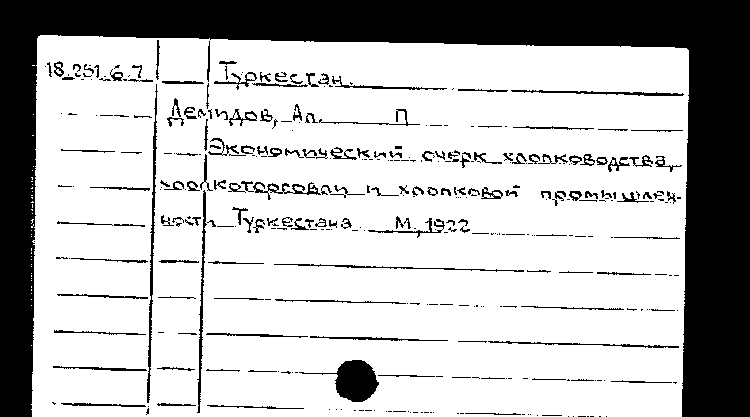 18.251.6.7 Туркестан.
Демидов, Ал. П
Экономический очерк хлопководства,
хлопкоторговли и хлопковой промышлен-
ности Туркестана М, 1922